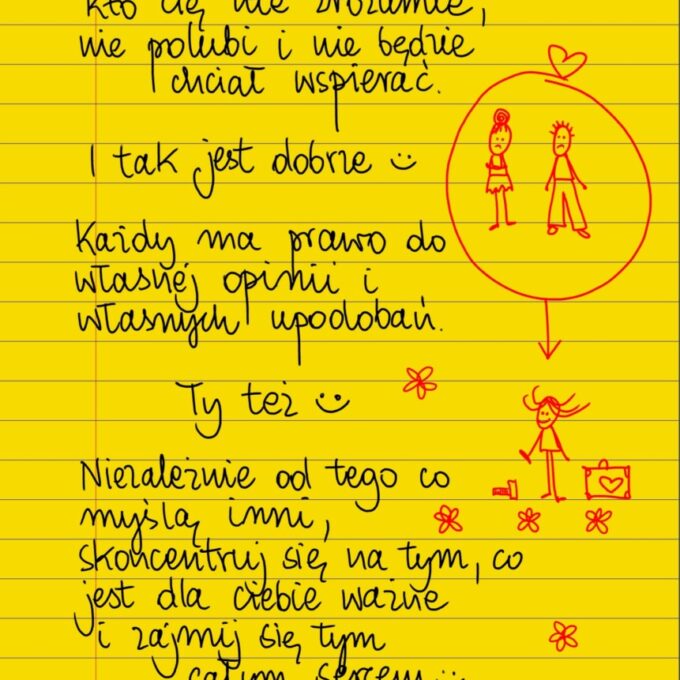 kto cię nie zrozumie,
nie polubi i nie będzie
chciał wspierać.
I tak jest dobrze :)
Każdy ma prawo do
własnej opinii i
własnych upodobań.
Ty też :)
Niezależnie od tego co
myślą inni,
skoncentruj się na tym, co
jest dla ciebie ważne
i zajmij się tym
całym sercem :)